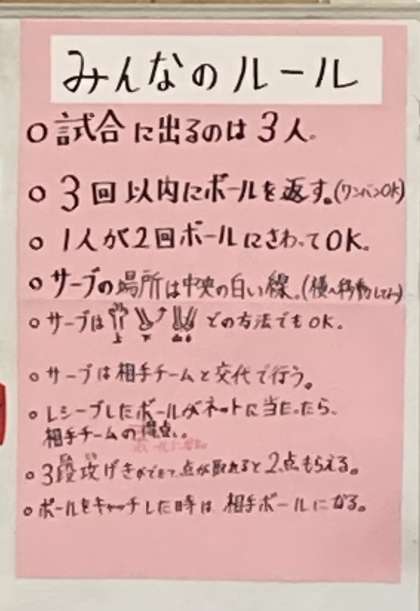 みんなのルール
○試合に出るのは3人。
○3回以内にボールを返す。(ワンバンOK)
○1人が2回ボールにさわってOK。
○サーブの場所は中央の白い線。(横へ移動しても)
○サーブは 上 下 どの方法でもOK。
○サーブは相手チームと交代で行う。
○レシーブしたボールがネットに当たったら、
相手チームの得点。
○3段攻げきができて、点が取れると2点もらえる。
○ボールをキャッチした時は、相手ボールになる。